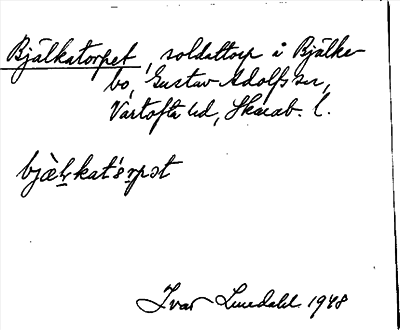 Bjälkatorpet, soldattorp å Bjälke-
bo, Gustav Adolfs sn,
Vartofta hd, Skarab. l.
bjæ̀lkat'årpət
Ivar Lundahl 1948